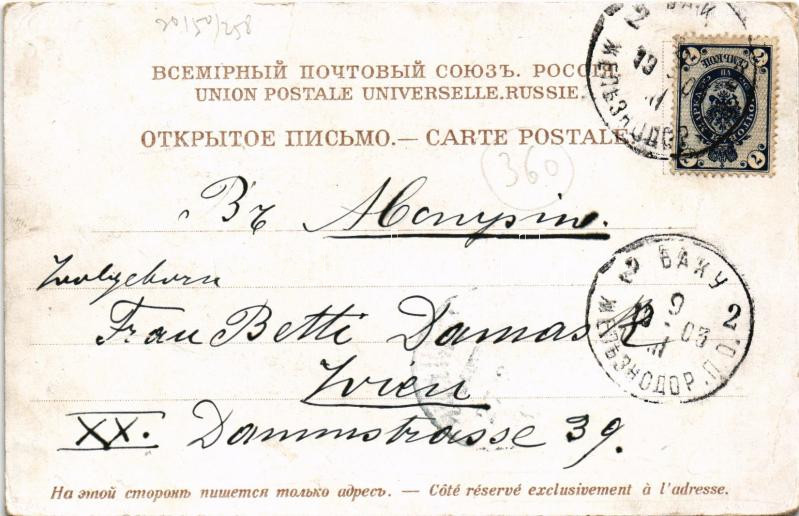 20/50/258
ВСЕМІРНЫЙ ПОЧТОВЫЙ СОЮЗЪ. РОССІЯ.
UNION POSTALE UNIVERSELLE. RUSSIE.
ОТКРЫТОЕ ПИСЬМО. — CARTE POSTALE
2 БАКУ
ЖЕЛѢЗНОДОР.
2 2
2 2
360
Въ Австрію.
Frau Betti Damask
Wien
XX. Dammstrasse 39.
2 БАКУ 2
9 03
ЖЕЛѢЗНОДОР. П. О.
На этой сторонѣ пишется только адресъ. — Côté réservé exclusivement à l'adresse.